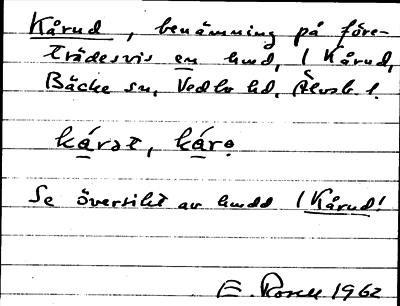 Kårud, benämning på före-
trädesvis en hmd, 1 Kårud,
Bäcke sn, Vedbo hd, Älvsb. l.
kárət, kárə
Se översikt av hmdd 1 Kårud!
E. Rosell 1962